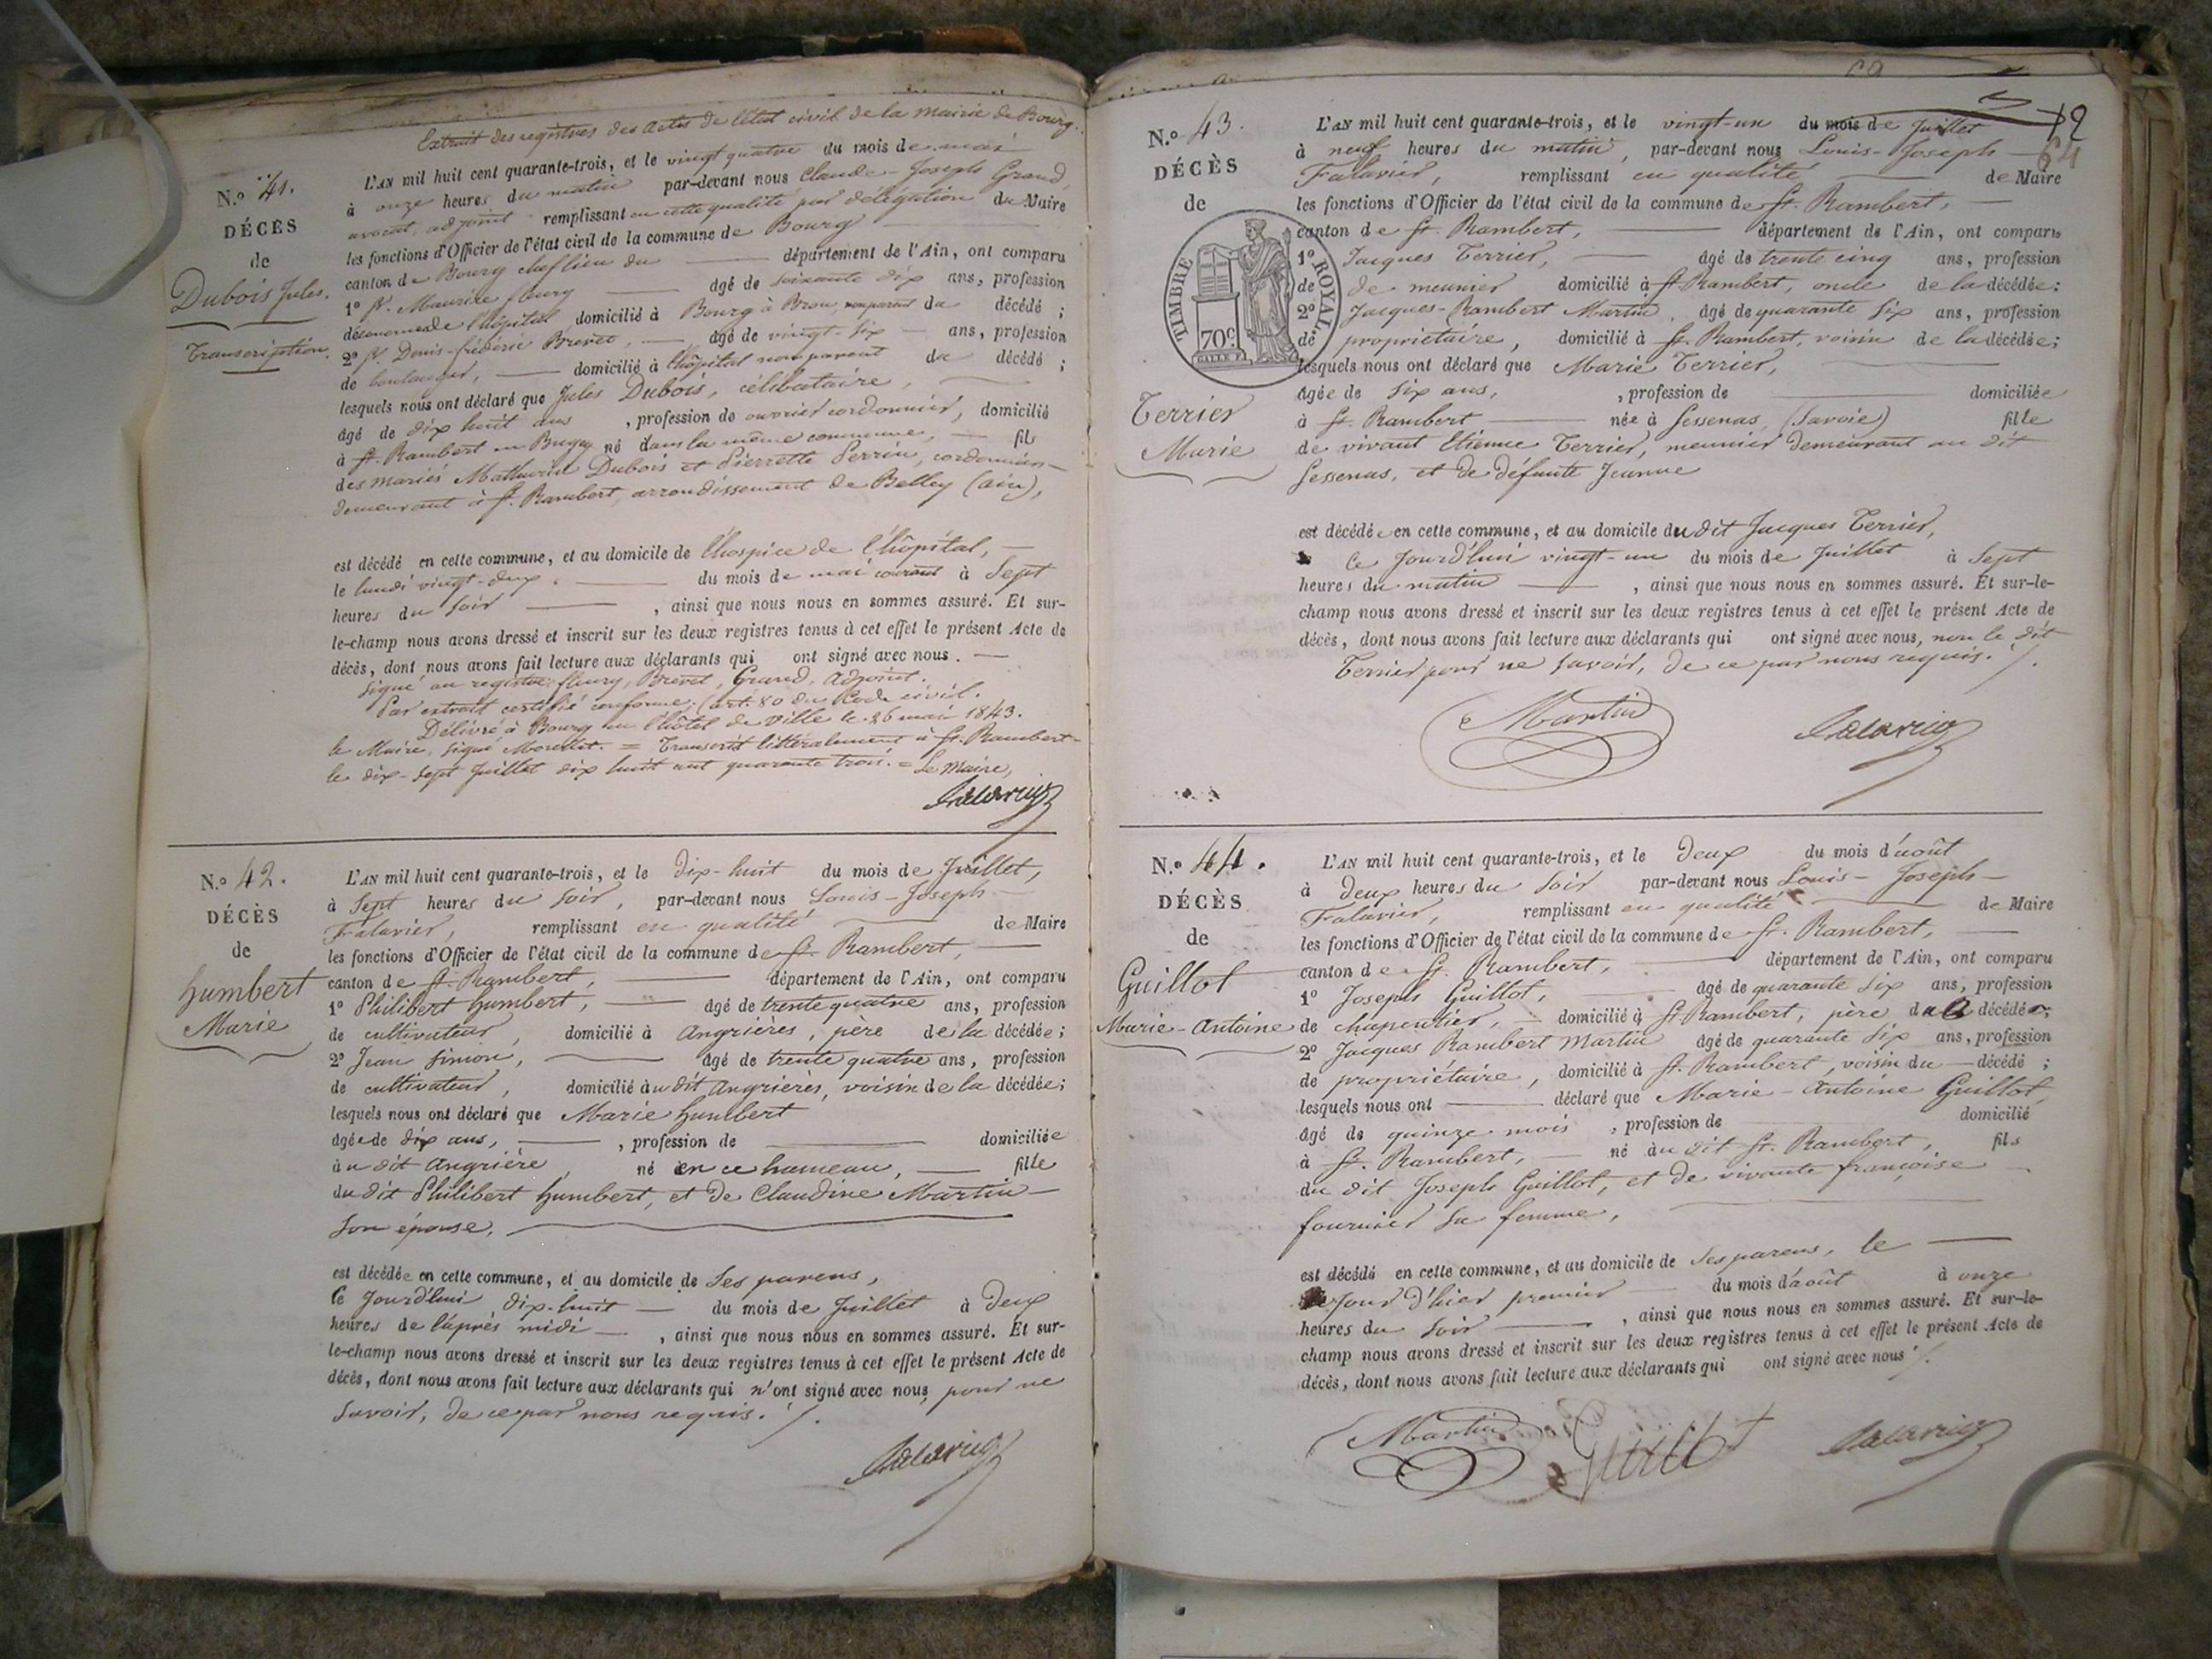 Extrait des registres des actes de l'état civil de la Mairie de Bourg.
N.º 41.
DÉCÈS
de
Dubois Jules.
Transcription.
L'AN mil huit cent quarante-trois, et le vingt quatre du mois de mai
à onze heures du matin par-devant nous Claude-Joseph Grand,
avocat, adjoint remplissant en cette qualité par délégation du Maire
les fonctions d'Officier de l'état civil de la commune de Bourg
canton de Bourg chef lieu du département de l'Ain, ont comparu
1º Sr. Maurice fleury âgé de soixante dix ans, profession
d'économe de l'hôpital domicilié à Bourg à Brou, non parent du décédé ;
2º Sr. Denis-frédéric Brevet, âgé de vingt-six ans, profession
de boulanger, domicilié à l'hôpital non parent du décédé ;
lesquels nous ont déclaré que Jules Dubois, célibataire,
âgé de dix huit ans , profession de ouvrier cordonnier, domicilié
à St. Rambert en Bugey né dans la même commune, fils
des mariés Mathurin Dubois et Pierrette Perrin, cordonnier
demeurant à St. Rambert, arrondissement de Belley (ain),
est décédé en cette commune, et au domicile de l'hospice de l'hôpital,
le lundi vingt-deux du mois de mai courant à Sept
heures du soir , ainsi que nous nous en sommes assuré. Et sur-
le-champ nous avons dressé et inscrit sur les deux registres tenus à cet effet le présent Acte de
décès, dont nous avons fait lecture aux déclarants qui ont signé avec nous.
Signé au registre: fleury, Brevet, Grand, Adjoint.
Par extrait certifié conforme; (art. 80 du Code civil.
Délivré à Bourg en l'hôtel de ville le 26 mai 1843.
le Maire, signé = Transcrit littéralement à St. Rambert
le dix-sept Juillet dix huit cent quarante trois. = Le Maire,
N.º 42.
DÉCÈS
de
Humbert
Marie
L'AN mil huit cent quarante-trois, et le dix-huit du mois de Juillet,
à Sept heures du soir, par-devant nous Louis-Joseph
Falavier, remplissant en qualité de Maire
les fonctions d'Officier de l'état civil de la commune de St. Rambert,
canton de St. Rambert, département de l'Ain, ont comparu
1º Philibert humbert, âgé de trente quatre ans, profession
de cultivateur, domicilié à Angrières, père de la décédée;
2º Jean Simion, âgé de trente quatre ans, profession
de cultivateur, domicilié au dit Angrières, voisin de la décédée;
lesquels nous ont déclaré que Marie humbert
âgée de dix ans, , profession de domiciliée
au dit Angrière, né en ce hameau, fille
du dit Philibert humbert, et de Claudine Martin
son épouse,
est décédée en cette commune, et au domicile de Ses parens,
Ce Jourd'hui dix-huit du mois de Juillet à deux
heures de l'après midi , ainsi que nous nous en sommes assuré. Et sur-
le-champ nous avons dressé et inscrit sur les deux registres tenus à cet effet le présent Acte de
décès, dont nous avons fait lecture aux déclarants qui n'ont signé avec nous, pour ne
savoir, de ce par nous requis.
12
64
N.º 43.
DÉCÈS
de
TIMBRE ROYAL.
70c.
Terrier
Marie
L'AN mil huit cent quarante-trois, et le vingt-un du mois de Juillet
à neuf heures du matin, par-devant nous Louis-Joseph
Falavier, remplissant en qualité de Maire
les fonctions d'Officier de l'état civil de la commune de St. Rambert,
canton de St. Rambert, département de l'Ain, ont comparu
1º Jacques Terrier, âgé de trente cinq ans, profession
de de meunier domicilié à St. Rambert, oncle de la décédée;
2º Jacques-Rambert Martin, âgé de quarante six ans, profession
de propriétaire, domicilié à St. Rambert, voisin de la décédée;
lesquels nous ont déclaré que Marie Terrier,
âgée de six ans, , profession de domiciliée
à St. Rambert née à Sessenas, (Savoie) fille
de vivant Etienne Terrier, meunier demeurant au dit
Sessenas, et de défunte Jeanne
est décédée en cette commune, et au domicile du dit Jacques Terrier,
Ce Jourd'hui vingt-un du mois de Juillet à Sept
heures du matin , ainsi que nous nous en sommes assuré. Et sur-le-
champ nous avons dressé et inscrit sur les deux registres tenus à cet effet le présent Acte de
décès, dont nous avons fait lecture aux déclarants qui ont signé avec nous, non le dit
Terrier pour ne savoir, de ce par nous requis.
Martin
N.º 44.
DÉCÈS
de
Guillot
Marie-Antoine
L'AN mil huit cent quarante-trois, et le deux du mois d'août
à deux heures du soir par-devant nous Louis-Joseph
Falavier, remplissant en qualité de Maire
les fonctions d'Officier de l'état civil de la commune de St. Rambert,
canton de St. Rambert, département de l'Ain, ont comparu
1º Joseph Guillot, âgé de quarante six ans, profession
de chapentier, domicilié à St. Rambert, père du décédé;
2º Jacques Rambert Martin âgé de quarante six ans, profession
de propriétaire, domicilié à St. Rambert, voisin du décédé ;
lesquels nous ont déclaré que Marie-Antoine Guillot,
âgé de quinze mois , profession de domicilié
à St. Rambert, né au dit St. Rambert, fils
du dit Joseph Guillot, et de vivante françoise
fournier sa femme,
est décédé en cette commune, et au domicile de Ses parens, le
jour d'hier premier du mois d'août à onze
heures du soir , ainsi que nous nous en sommes assuré. Et sur-le-
champ nous avons dressé et inscrit sur les deux registres tenus à cet effet le présent Acte de
décès, dont nous avons fait lecture aux déclarants qui ont signé avec nous
Martin
Guillot